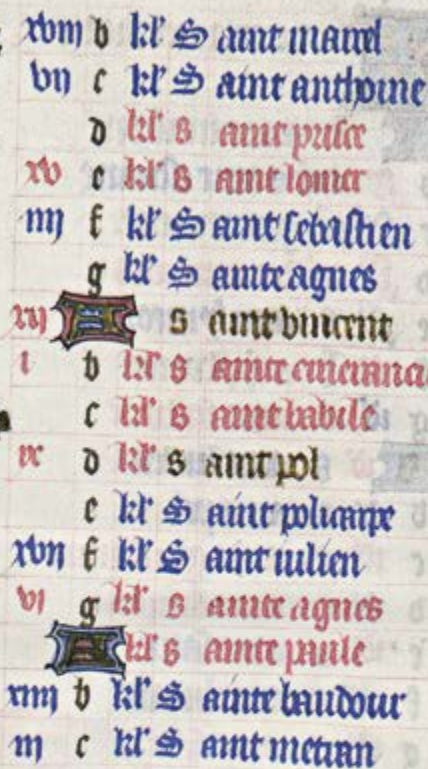 xviij b kl' S aint marcel
vij c kl' S aint anthoine
d kl' s aint prisce
xv e kl' s aint lomer
iiij f kl' S aint sebastien
g kl' S ainte agnes
xij A s aint vincent
i b kl' s ainte emerancia
c kl' s aint babile
ix d kl' s aint pol
e kl' S aint policarpe
xvij f kl' S aint iulien
vi g kl' s ainte agnes
A kl' s ainte paule
xiiij b kl' S ainte baudour
iij c kl' S aint metran